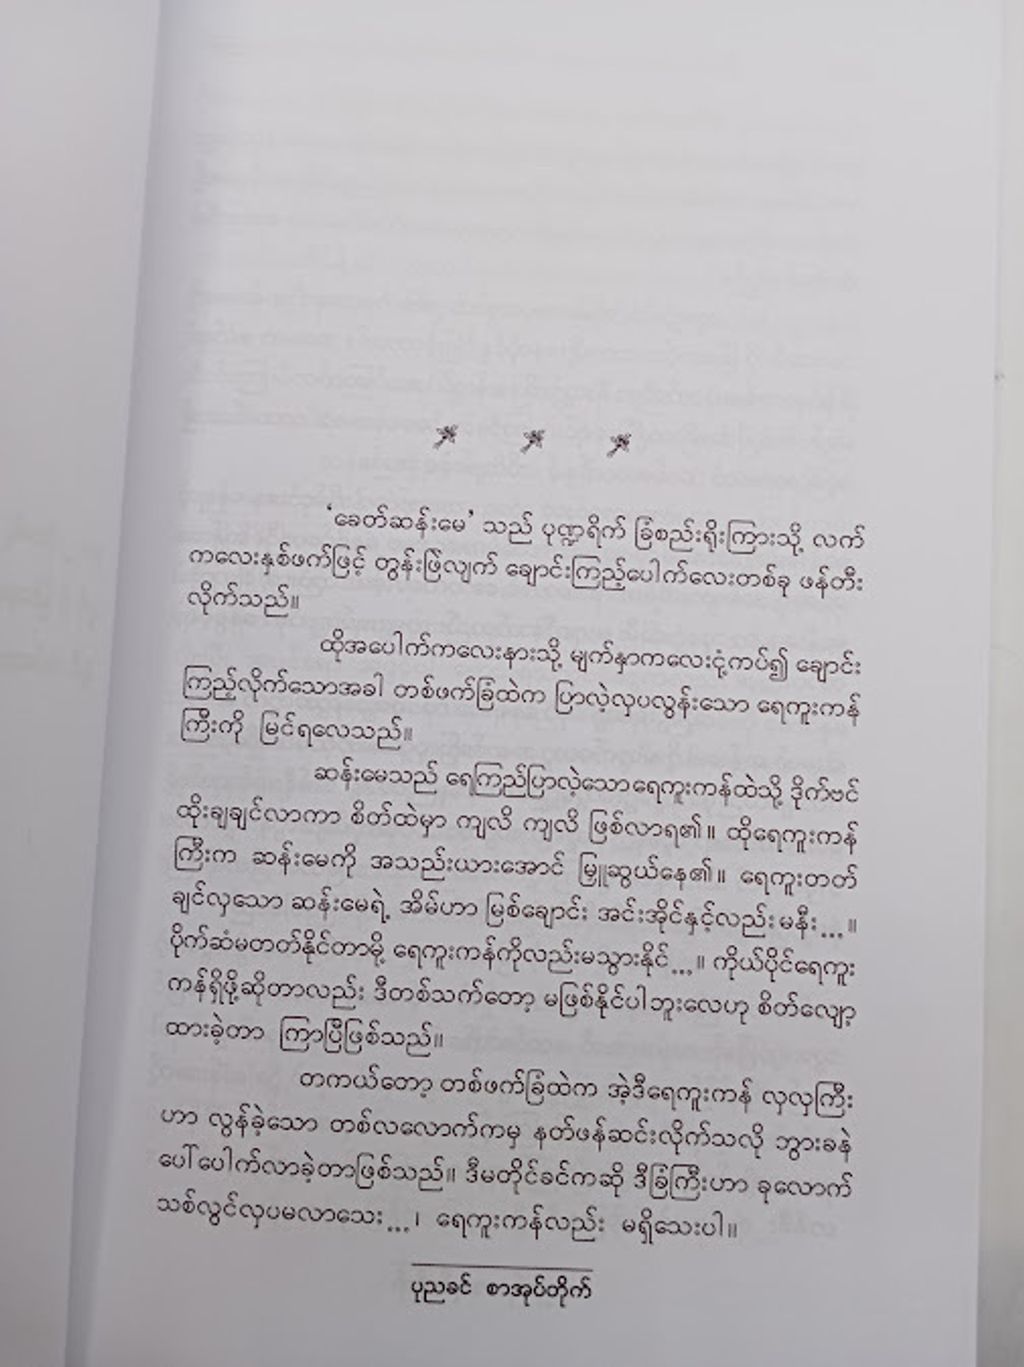 ‘ခေတ်ဆန်းမေ’ သည် ပုဏ္ဍရိက် ခြံစည်းရိုးကြားသို့ လက်
ကလေးနှစ်ဖက်ဖြင့် တွန်းဖြဲလျက် ချောင်းကြည့်ပေါက်လေးတစ်ခု ဖန်တီး
လိုက်သည်။
ထိုအပေါက်ကလေးနားသို့ မျက်နှာကလေးငုံ့ကပ်၍ ချောင်း
ကြည့်လိုက်သောအခါ တစ်ဖက်ခြံထဲက ပြာလဲ့လှပလွန်းသော ရေကူးကန်
ကြီးကို မြင်ရလေသည်။
ဆန်းမေသည် ရေကြည်ပြာလဲ့သောရေကူးကန်ထဲသို့ ဒိုက်ဗင်
ထိုးချချင်လာကာ စိတ်ထဲမှာ ကျလိ ကျလိ ဖြစ်လာရ၏။ ထိုရေကူးကန်
ကြီးက ဆန်းမေကို အသည်းယားအောင် မြှူဆွယ်နေ၏။ ရေကူးတတ်
ချင်လှသော ဆန်းမေရဲ့ အိမ်ဟာ မြစ်ချောင်း အင်းအိုင်နှင့်လည်း မနီး...။
ပိုက်ဆံမတတ်နိုင်တာမို့ ရေကူးကန်ကိုလည်းမသွားနိုင်...။ ကိုယ်ပိုင်ရေကူး
ကန်ရှိဖို့ဆိုတာလည်း ဒီတစ်သက်တော့ မဖြစ်နိုင်ပါဘူးလေဟု စိတ်လျော့
ထားခဲ့တာ ကြာပြီဖြစ်သည်။
တကယ်တော့ တစ်ဖက်ခြံထဲက အဲ့ဒီရေကူးကန် လှလှကြီး
ဟာ လွန်ခဲ့သော တစ်လလောက်ကမှ နတ်ဖန်ဆင်းလိုက်သလို ဘွားခနဲ
ပေါ်ပေါက်လာခဲ့တာဖြစ်သည်။ ဒီမတိုင်ခင်ကဆို ဒီခြံကြီးဟာ ခုလောက်
သစ်လွင်လှပမလာသေး...၊ ရေကူးကန်လည်း မရှိသေးပါ။
ပုညခင် စာအုပ်တိုက်